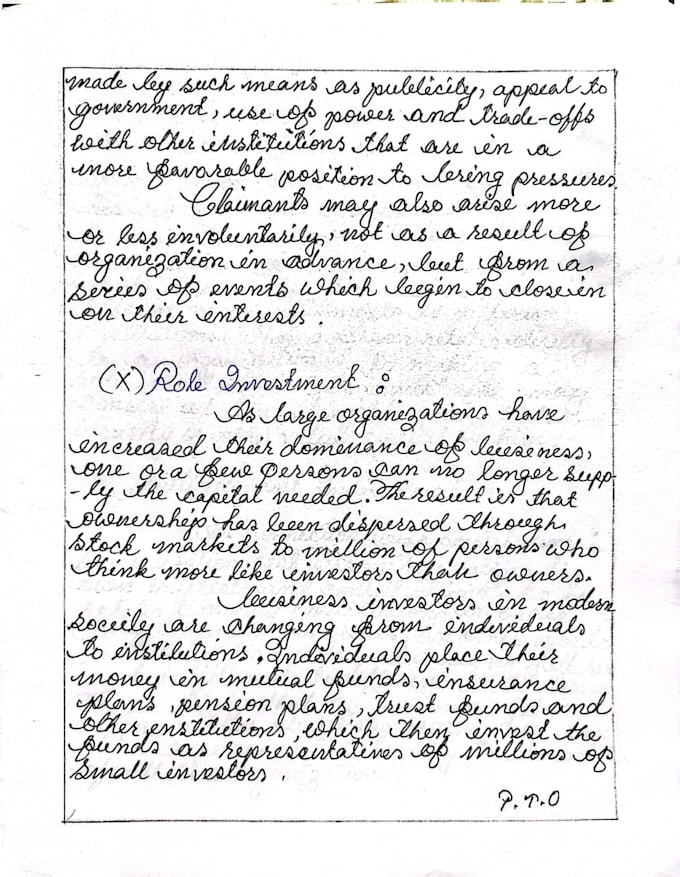 made by such means as publicity, appeal to
government, use of power and trade-offs
with other institutions that are in a
more favorable position to bring pressures.
Claimants may also arise more
or less involuntarily, not as a result of
organization in advance, but from a
series of events which begin to close in
on their interests.
(X) Role Investment :
As large organizations have
increased their dominance of business,
one or a few persons can no longer supp-
-ly the capital needed. The result is that
ownership has been dispersed through
stock markets to million of persons who
think more like investors than owners.
business investors in modern
society are changing from individuals
to institutions. Individuals place their
money in mutual funds, insurance
plans, pension plans, trust funds and
other institutions, which then invest the
funds as representatives of millions of
small investors.
P.T.O